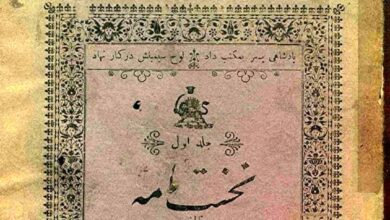 پادشاهی پسر بمکتب داد لوح سیمینش در کنار نهاد
جلد اول
نخست نامه